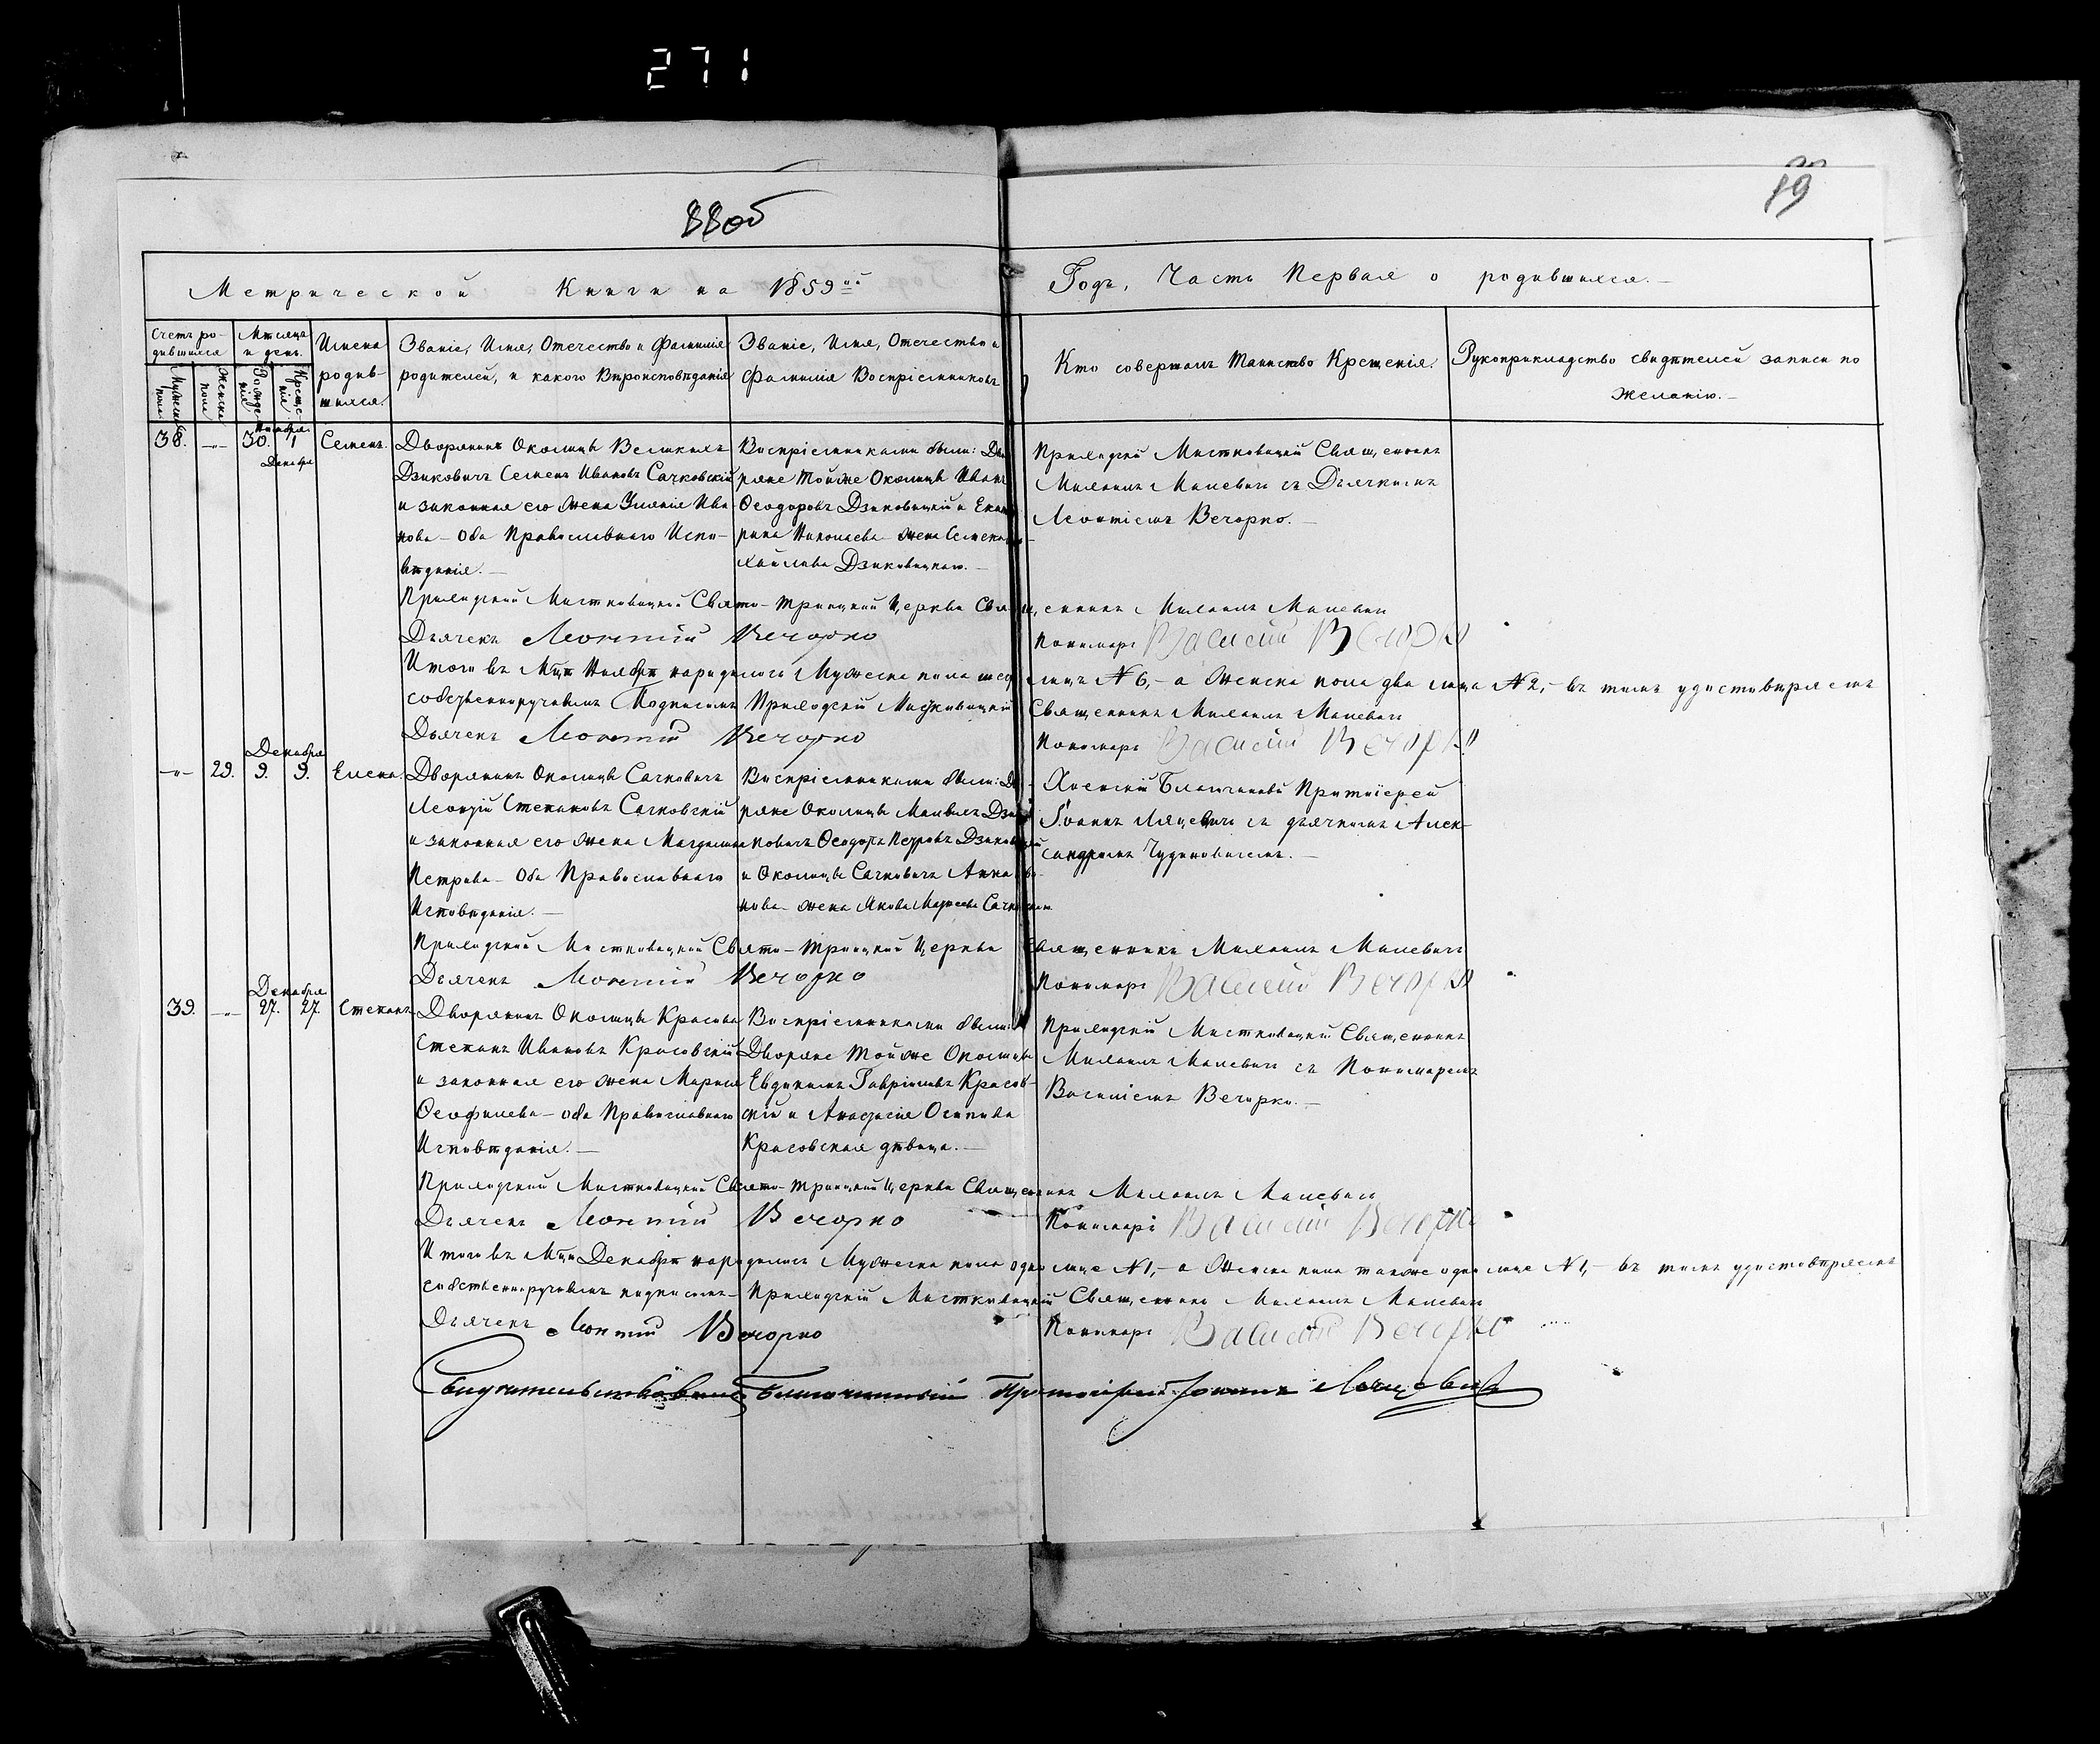 271
88об
89
Метрической Книги на 1859ый
Годъ, Часть Первая о родившихся.
Счетъ ро-
дившихся
Мѣсяцъ
и день.
Имена
родив-
шихся.
Званіе, Имя, Отечество и Фамилія
родителей, и какого Вѣроисповѣданія
Званіе, Имя, Отечество и
Фамилія Воспріемниковъ
Кто совершалъ Таинство Крещенія.
Рукоприкладство свидѣтелей записи по
желанію.
Мужеска
пола
Женска
пола
Рожде
нія
Креще
нія
38.
30. Ноября
1 Декабря
Семенъ.
Дворянинъ Околицы Великихъ
Дзиковичъ Семенъ Ивановъ Сачковскій
и законная его жена Уліянія Ива-
нова - Оба Православнаго Испо-
вѣданія.
Воспріемниками были: Дво
ряне Тойже Околицы Иванъ
Ѳеодоровъ Дзиковицкій и Екате
рина Николаева жена Семена
хайлова Дзиковицкаго.
Приходскій Мистковицкій Священникъ
Михаилъ Малевичъ съ Дьячкомъ
Леонтіемъ Вечорко.
Приходскій Мистковицкой Свято-Троицкой Церкви Священникъ Михаилъ Малевичъ
Дьячекъ Леонтій Вечорко
Пономарь Василій Вечорко
Итого въ Мцѣ Ноябрѣ народилось Мужеска пола шесть лицъ №6, - а Женска пола два лица №2, - въ томъ удостовѣряемъ
собственноручнымъ Подписомъ Приходскій Мистковицкій Священникъ Михаилъ Малевичъ
Дьячекъ Леонтій Вечорко
Пономарь Василій Вечорко
29.
Декабря
9. 9.
Елена.
Дворянинъ Околицы Сачковичъ
Леонтій Степановъ Сачковскій
и законная его жена Магдалина
Петрова - Оба Православнаго
Исповѣданія.
Воспріемниками были: Дво
ряне Околицы Малыхъ Дзи
ковичъ Ѳеодоръ Петровъ Дзиковицкій
и Околицы Сачковичъ Анна
нова - жена Якова Матѳеева Сачковскаго
Хоенскій Благочинный Протоіерей
Іоаннъ Ляцевичъ съ дьячкомъ Алек-
сандромъ Чудиновичемъ.
Приходскій Мистковицкой Свято-Троицкой Церкви Священникъ Михаилъ Малевичъ
Дьячекъ Леонтій Вечорко
Пономарь Василій Вечорко
39.
Декабря
27. 27.
Степанъ
Дворянинъ Околицы Красова
Степанъ Ивановъ Красовскій
и законная его жена Марія
Ѳеофилева - оба Православнаго
Исповѣданія.
Воспріемниками были:
Дворяне тойже Околицы
Евдокимъ Гавріиловъ Красов-
скій и Анастасія Осипова
Красовская дѣвица.
Приходскій Мистковицкій Священникъ
Михаилъ Малевичъ съ Пономаремъ
Василіемъ Вечорко.
Приходскій Мистковицкой Свято-Троицкой Церкви Священникъ Михаилъ Малевичъ
Дьячекъ Леонтій Вечорко
Пономарь Василій Вечорко
Итого въ Мцѣ Декабрѣ народилось Мужеска пола одно лице №1, - а Женска пола также одно лице №1, - въ томъ удостовѣряемъ
собственноручнымъ подписомъ - Приходскій Мистковицкій Священникъ Михаилъ Малевичъ
Дьячекъ Леонтій Вечорко
Пономарь Василій Вечорко
Свидѣтельствовалъ Благочинный Протоіерей Іоаннъ Ляцевичъ